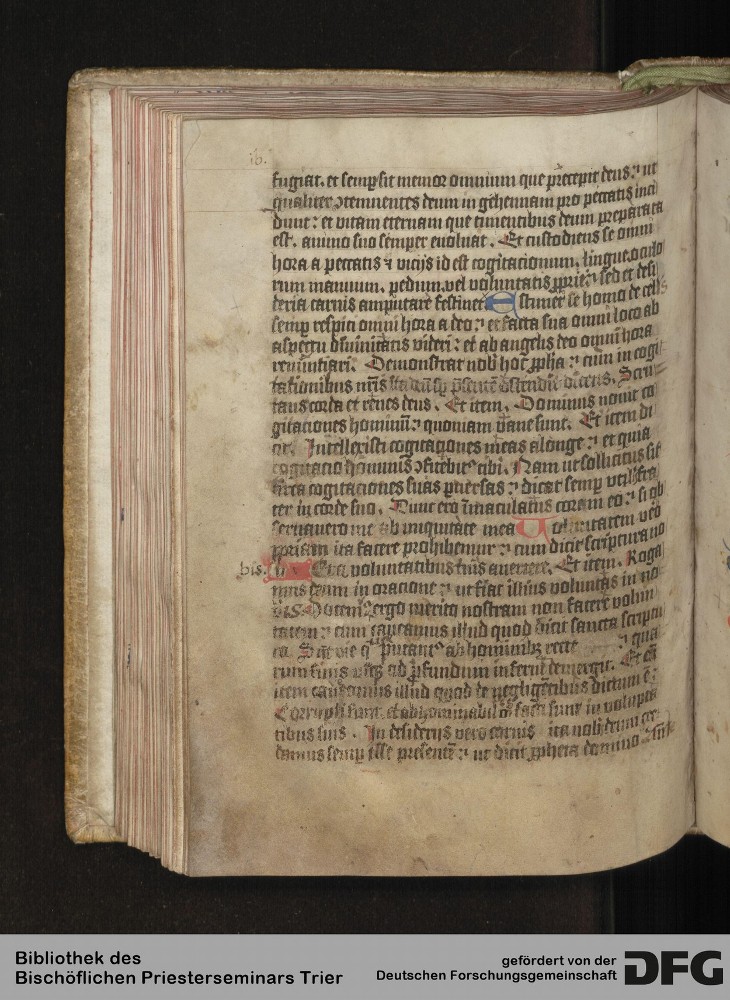 fugiat. et semp sit memor omnium que precepit deus: ut
qualiter ɔtemnentes deum in gehennam pro peccatis inci
dunt: et vitam eternam que timentibus deum preparata
est. animo suo semper euoluat. Et custodiens se omni
hora a peccatis ⁊ vicijs id est cogitacionum, lingue, oculo
rum manuum, pedum, vel voluntatis pprie: sed et desi
deria carnis amputare festinet Estimet se homo de cel
semp respici omni hora a deo: et facta sua omni loco ab
aspectu diuinitatis videri: et ab angelis deo omni hora
renuntiari. Demonstrat nob hoc ppha: cum in cogi
tationibus nris ita deum semp psente ostendit dicens. Scru
tans corda et renes deus. Et item. Dominus nouit co
gitationes hominum: quoniam vane sunt. Et item di
cit. Intellexisti cogitationes meas a longe: et quia
cogitacio hominis ɔfitebit tibi. Nam ut sollicitus sit
circa cogitaciones suas puersas: dicat semp utilis fra
ter in corde suo. Tunc ero inmaculatus coram eo: si ob
seruauero me ab iniquitate mea Voluntatem vero
ppriam ita facere prohibemur: cum dicit scriptura no
bis. Et a voluntatibus tuis auertere. Et item. Roga
mus deum in oracione: ut fiat illius voluntas in no
bis. Docemur ergo merito nostram non facere volun
tatem: cum caueamus illud quod dicit sancta scriptu
ra. Sunt vie q putant ab hominibz recte : qua
rum finis usqz ad pfundum inferni demergit. Et cu
item caueamus illud quod de negligentibus dictum e:
Corrupti sunt et abhominabiles facti sunt in volupta
tibus suis. In desiderijs vero carnis ita nob deum cre
damus semp esse presente: ut dicit ppheta domino
16.
bis.
Bibliothek des
Bischöflichen Priesterseminars Trier
gefördert von der
Deutschen Forschungsgemeinschaft
DFG